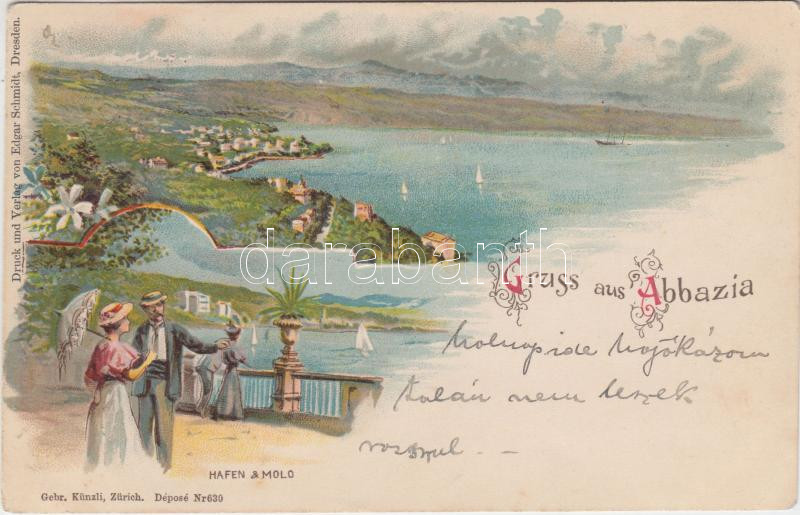 Druck und Verlag von Edgar Schmidt, Dresden.
darabanth
Gruss aus Abbazia
holnap ide hajókázom
talán nem leszek
rosszul - -
HAFEN & MOLO
Gebr. Künzli, Zürich. Déposé Nr639